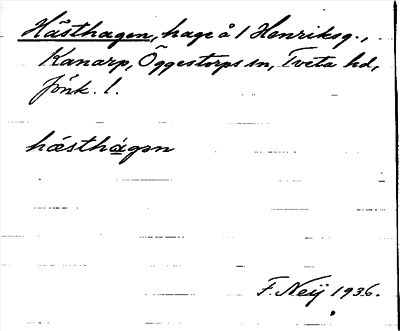 Hästhagen, hage å 1 Henriksg.,
Kanarp, Öggestorps sn, Tveta hd,
Jönk. l.
hǽsthágən
F. Neij 1936.